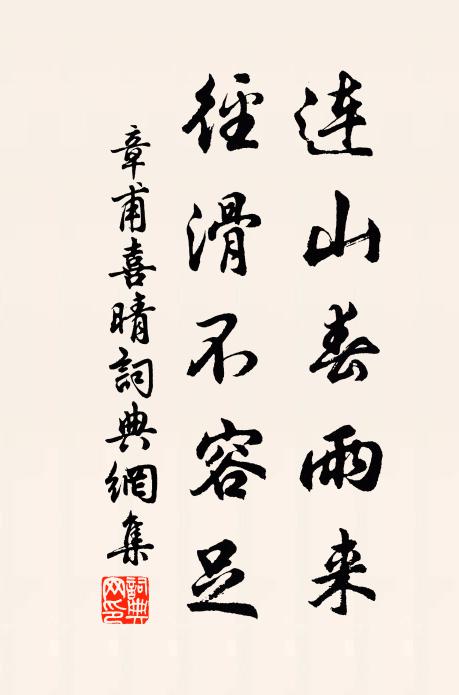 連山春雨来
徑滑不容足
章甫喜晴詞典網集
詞典網印